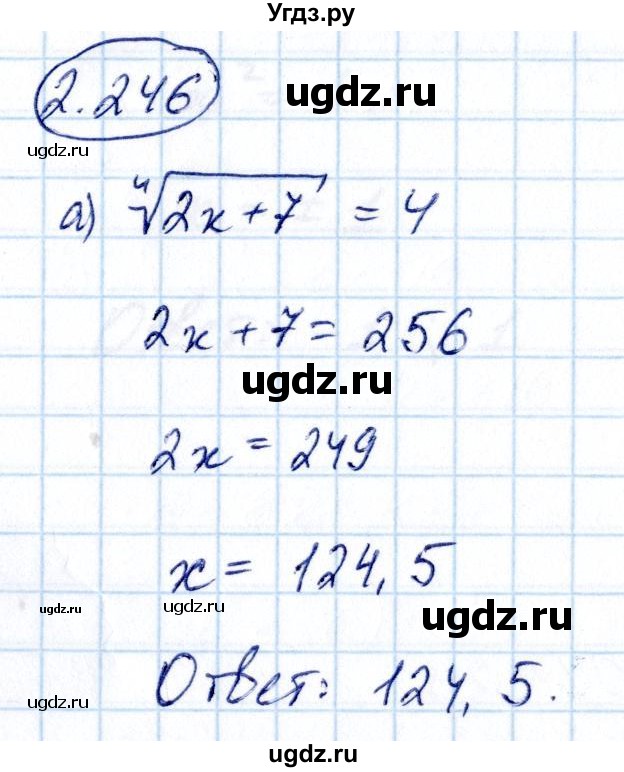 Угдз.ру
2.246
ugdz.ru
ugdz.ru
а) ⁴√(2x+7) = 4
ugdz.ru
2x + 7 = 256
ugdz.ru
2x = 249
x = 124,5
ugdz.ru
ugdz.ru
ugdz.ru
Ответ: 124,5.
ugdz.ru
ugdz.ru